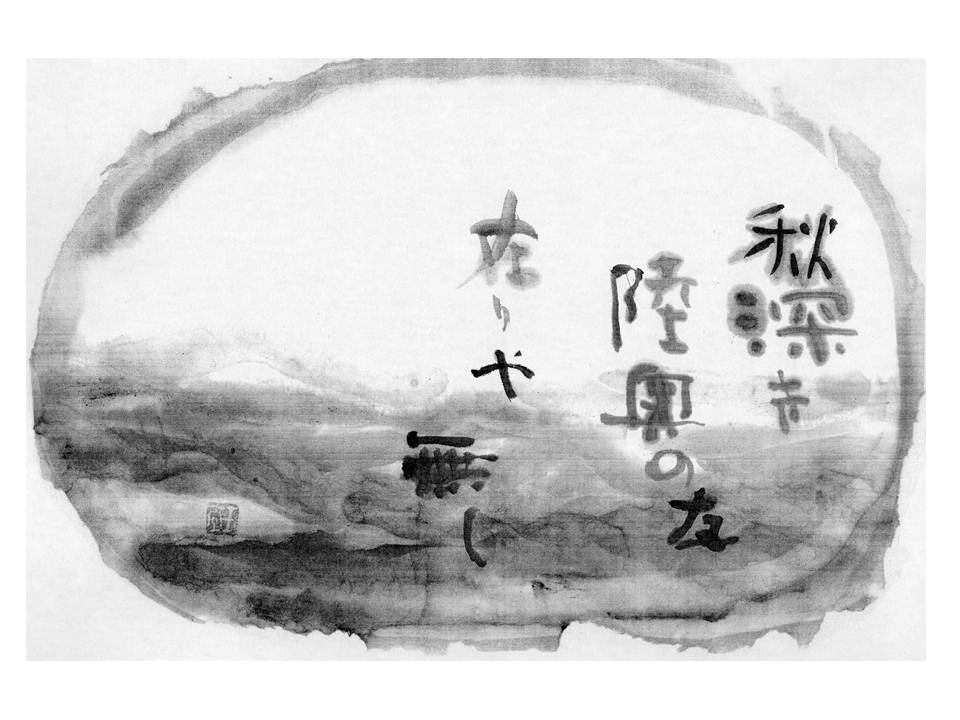 秋深き
陸奥の友
在りや無し